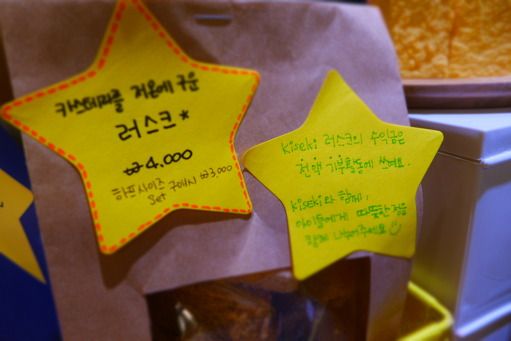 카스테라를 저온에 구운
러스크*
₩4.000
하프사이즈
Set 구매시 ₩3,000
Kiseki 러스크의 수익금은
전액 기부활동에 쓰여요.
Kiseki와 함께,
아이들에게 따뜻한 정을
함께 나눠주세요